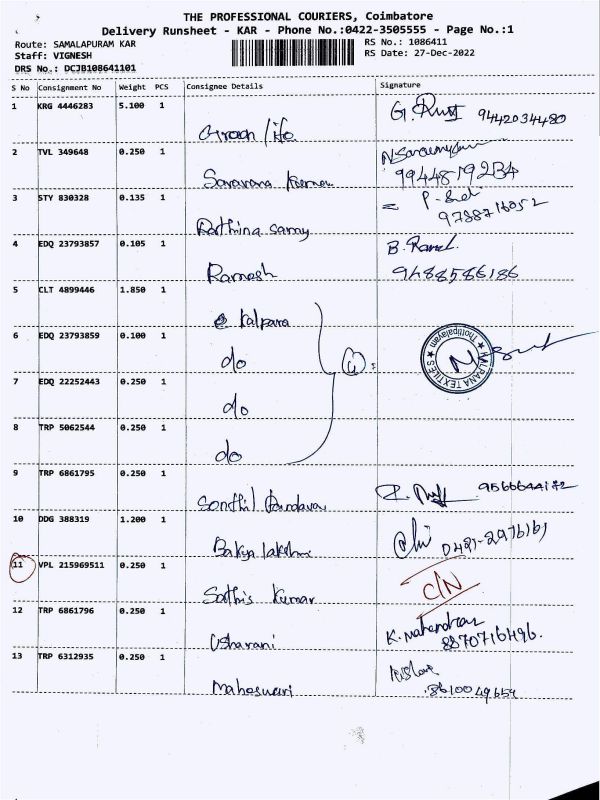 THE PROFESSIONAL COURIERS, Coimbatore
Delivery Runsheet - KAR - Phone No.:0422-3505555 - Page No.:1
Route: SAMALAPURAM KAR RS No.: 1086411
Staff: VIGNESH RS Date: 27-Dec-2022
DRS No.: DCJB108641101
S No Consignment No Weight PCS Consignee Details Signature
1 KRG 4446283 5.100 1
9442034480
2 TVL 349648 0.250 1
Saravana Kumar 9944819234
3 STY 830328 0.135 1
Rathina samy 9788716052
4 EDQ 23793857 0.105 1 B. Ramesh
Ramesh 9488586186
5 CLT 4899446 1.850 1
Kalpana
6 EDQ 23793859 0.100 1
do (4)
KALPANA TEXTILES ★ Thottipalayam ★
7 EDQ 22252443 0.250 1
do
8 TRP 5062544 0.250 1
do
9 TRP 6861795 0.250 1
9566644172
10 DDG 388319 1.200 1
Bakya lakshmi 0421-2976161
11 VPL 215969511 0.250 1
Sathis Kumar C/N
12 TRP 6861796 0.250 1 K. Mahendran
Usharani 8870716496.
13 TRP 6312935 0.250 1
Maheswari 8610049659